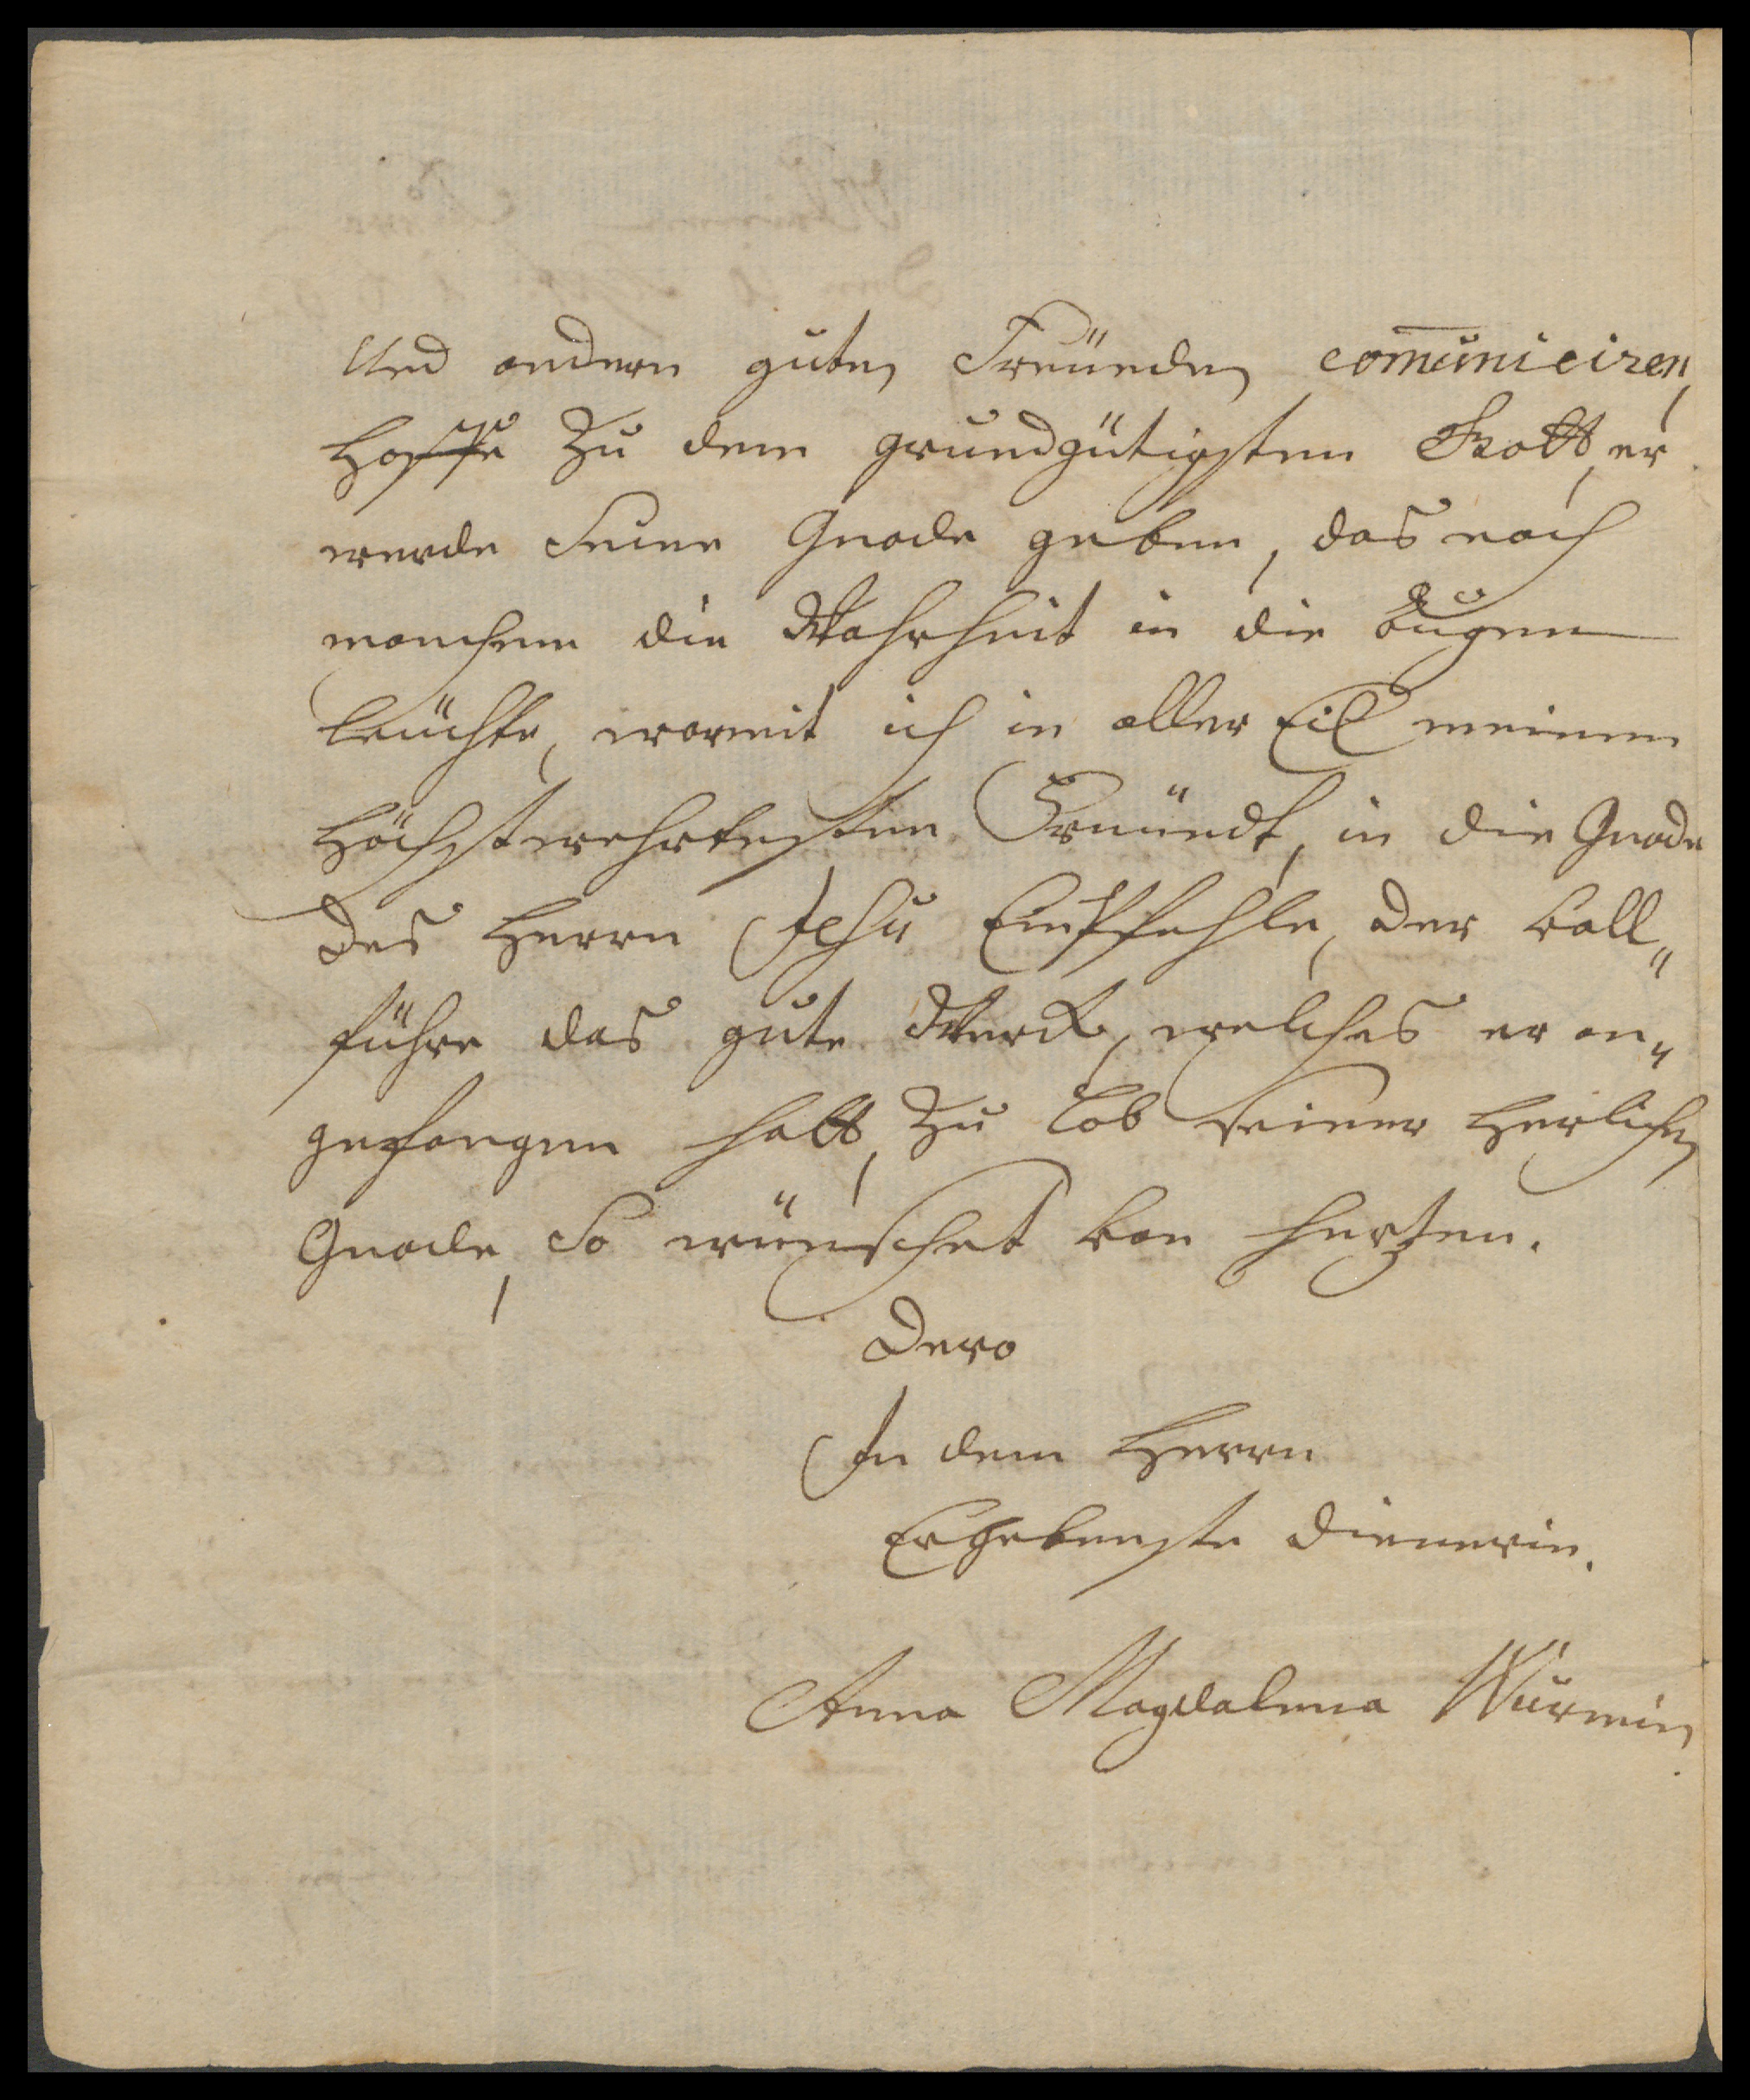 Und andern guten Freünden com̅uniciren,
Hoffe zu dem grundgütigsten Gott, er
werde Seine Gnade geben, das noch
manchem die Wahrheit in die Augen
leüchte, wormit ich in aller Eil meinen
Höchstwehrtesten Freündt, in die Gnade
des Herrn Jesu Empfehle, der voll„
führe das gute Werck, welches er an„
gefangen hatt, zu Lob seiner Herlichen
Gnade, So wünschet von hertzen.
Dero
In dem Herrn
Ergebenste dienerin.
Anna Magdalena Würmin